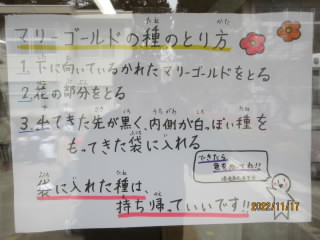 マリーゴールドの種のとり方
1.下に向いているかれたマリーゴールドをとる
2.花の部分をとる
3.出てきた先が黒く、内側が白っぽい種を
もってきた袋に入れる
できたら
袋に入れた種は、
持ち帰っていいです!!
2022/11/17